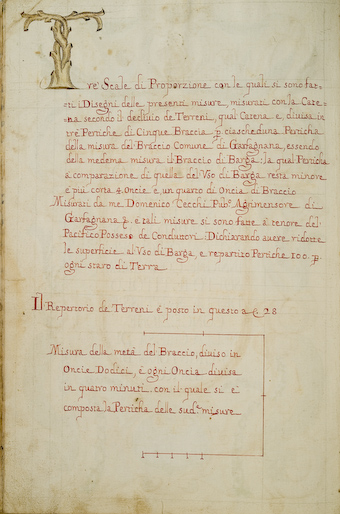 Tre Scale di Proporzione con le quali si sono fat-
ti i Disegni delle presenti misure, misurati con la Cate-
na secondo il declivio de Terreni, qual Catena è divisa in
trè Pertiche di Cinque Braccia p. ciascheduna Perticha
della misura del Braccio Comune di Garfagnana, essendo
della medema misura il Braccio di Barga: la qual Perticha
a comparazione di quella del Vso di Barga resta minore
e più corta 4 Oncie e un quarto di Oncia di Braccio
Misurati da me Domenico Cecchi Pub.º Agrimensore di
Garfagnana e tali misure si sono fatte a tenore del
Pacifico Possesso de Conduttori. Dichiarando avere ridotte
le superficie al Vso di Barga, e repartito Pertiche 100 p.
ogni staro di Terra
Il Repertorio de Terreni è posto in questo a C 28
Misura della metà del Braccio, diviso in
Oncie Dodici, e ogni Oncia divisa
in quatro minuti con il quale si è
composta la Perticha delle sud.e misure